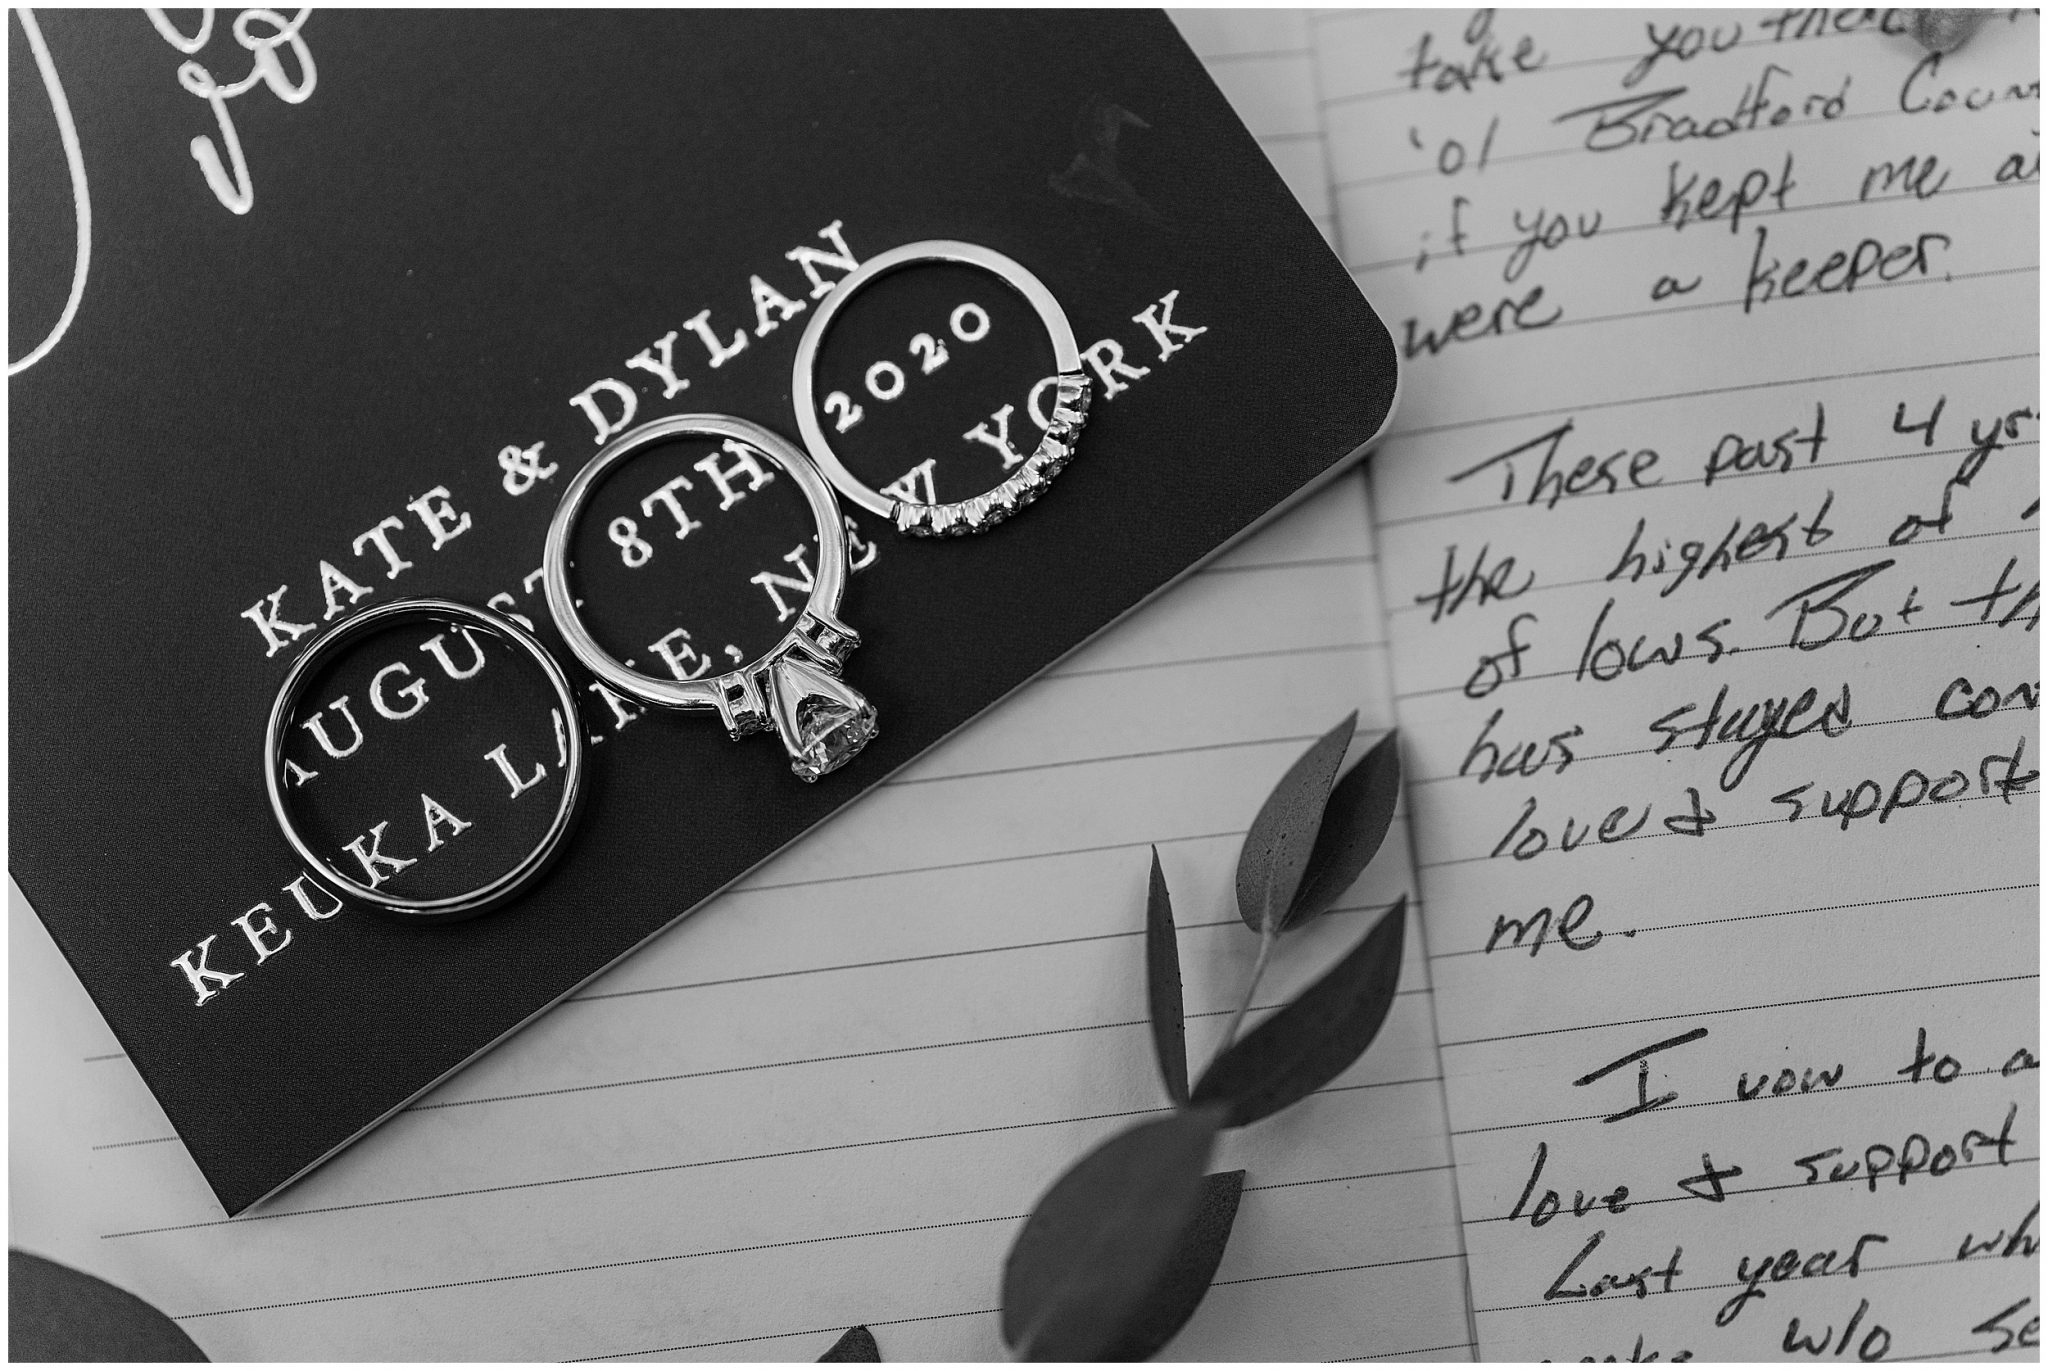 KATE & DYLAN
AUGUST 8TH 2020
KEUKA LAKE, NEW YORK
take you there
'ol Bradford Coun
if you kept me a
were a keeper.
These past 4 yr
the highest of
of lows. But th
has stayed con
love & support
me.
I vow to a
love & support
Last year wh
w/o se